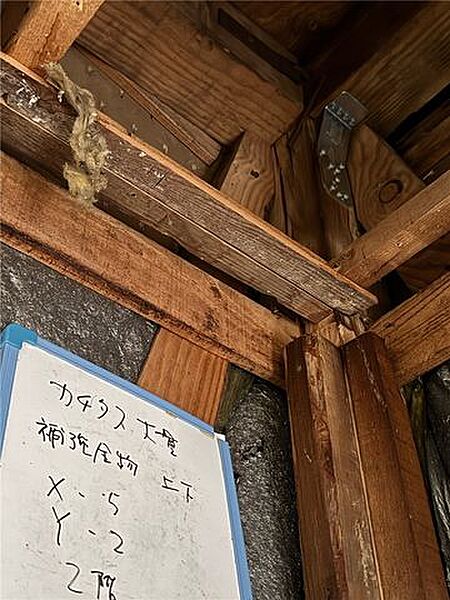 カチタス 大曽
補強金物 上下
X-5
Y-2
2階